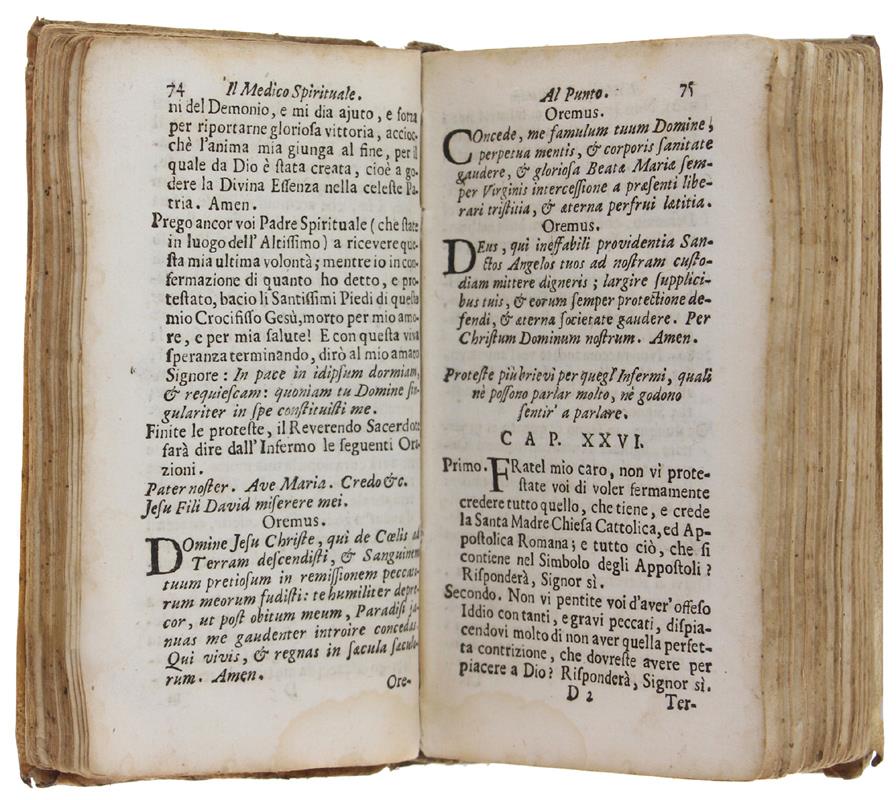 74 Il Medico Spirituale.
ni del Demonio, e mi dia ajuto, e forza
per riportarne glorioſa vittoria, accioc-
chè l'anima mia giunga al fine, per il
quale da Dio è ſtata creata, cioè a go-
dere la Divina Eſſenza nella celeſte Pa-
tria. Amen.
Prego ancor voi Padre Spirituale (che ſtate
in luogo dell' Altiſſimo) a ricevere que-
ſta mia ultima volontà; mentre io in con-
fermazione di quanto ho detto, e pro-
teſtato, bacio li Santiſſimi Piedi di queſto
mio Crocifiſſo Gesù, morto per mio amo-
re, e per mia ſalute! E con queſta viva
ſperanza terminando, dirò al mio amato
Signore: In pace in idipſum dormiam,
& requieſcam: quoniam tu Domine ſin-
gulariter in ſpe conſtituiſti me.
Finite le proteſte, il Reverendo Sacerdote
farà dire dall' Infermo le ſeguenti Ora-
zioni.
Pater noſter. Ave Maria. Credo &c.
Jeſu Fili David miſerere mei.
Oremus.
DOmine Jeſu Chriſte, qui de Cœlis ad
Terram deſcendiſti, & Sanguinem
tuum pretioſum in remiſſionem peccato-
rum meorum fudiſti: te humiliter depre-
cor, ut poſt obitum meum, Paradiſi ja-
nuas me gaudenter introire concedas.
Qui vivis, & regnas in ſæcula ſæculo-
rum. Amen.
Ore-
Al Punto. 75
Oremus.
COncede, me famulum tuum Domine,
perpetua mentis, & corporis ſanitate
gaudere, & glorioſa Beatæ Mariæ ſem-
per Virginis interceſſione a præſenti libe-
rari triſtitia, & æterna perfrui lætitia.
Oremus.
DEus, qui ineffabili providentia San-
ctos Angelos tuos ad noſtram cuſto-
diam mittere digneris; largire ſupplici-
bus tuis, & eorum ſemper protectione de-
fendi, & æterna ſocietate gaudere. Per
Chriſtum Dominum noſtrum. Amen.
Proteſte più brievi per quegl' Infermi, quali
nè poſſono parlar molto, nè godono
ſentir' a parlare.
CAP. XXVI.
Primo. FRatel mio caro, non vi prote-
ſtate voi di voler fermamente
credere tutto quello, che tiene, e crede
la Santa Madre Chieſa Cattolica, ed Ap-
poſtolica Romana; e tutto ciò, che ſi
contiene nel Simbolo degli Appoſtoli?
Riſponderà, Signor sì.
Secondo. Non vi pentite voi d'aver' offeſo
Iddio con tanti, e gravi peccati, diſpia-
cendovi molto di non aver quella perfet-
ta contrizione, che dovreſte avere per
piacere a Dio? Riſponderà, Signor sì.
D 2 Ter-